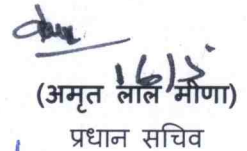 16/3
(अमृत लाल मीणा)
प्रधान सचिव